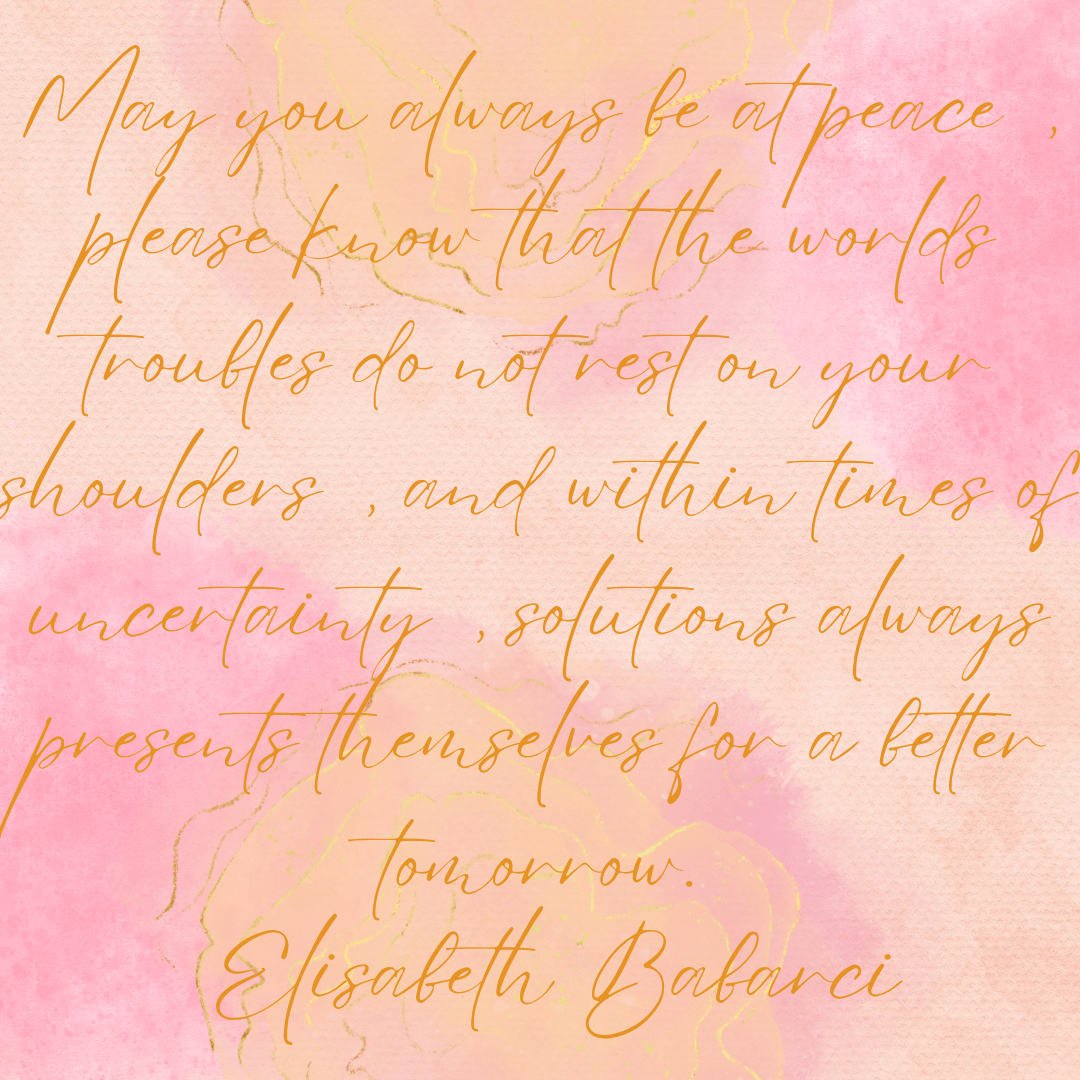 May you always be at peace ,
please know that the worlds
troubles do not rest on your
shoulders , and within times of
uncertainty , solutions always
presents themselves for a better
tomorrow.
Elisabeth Babarci